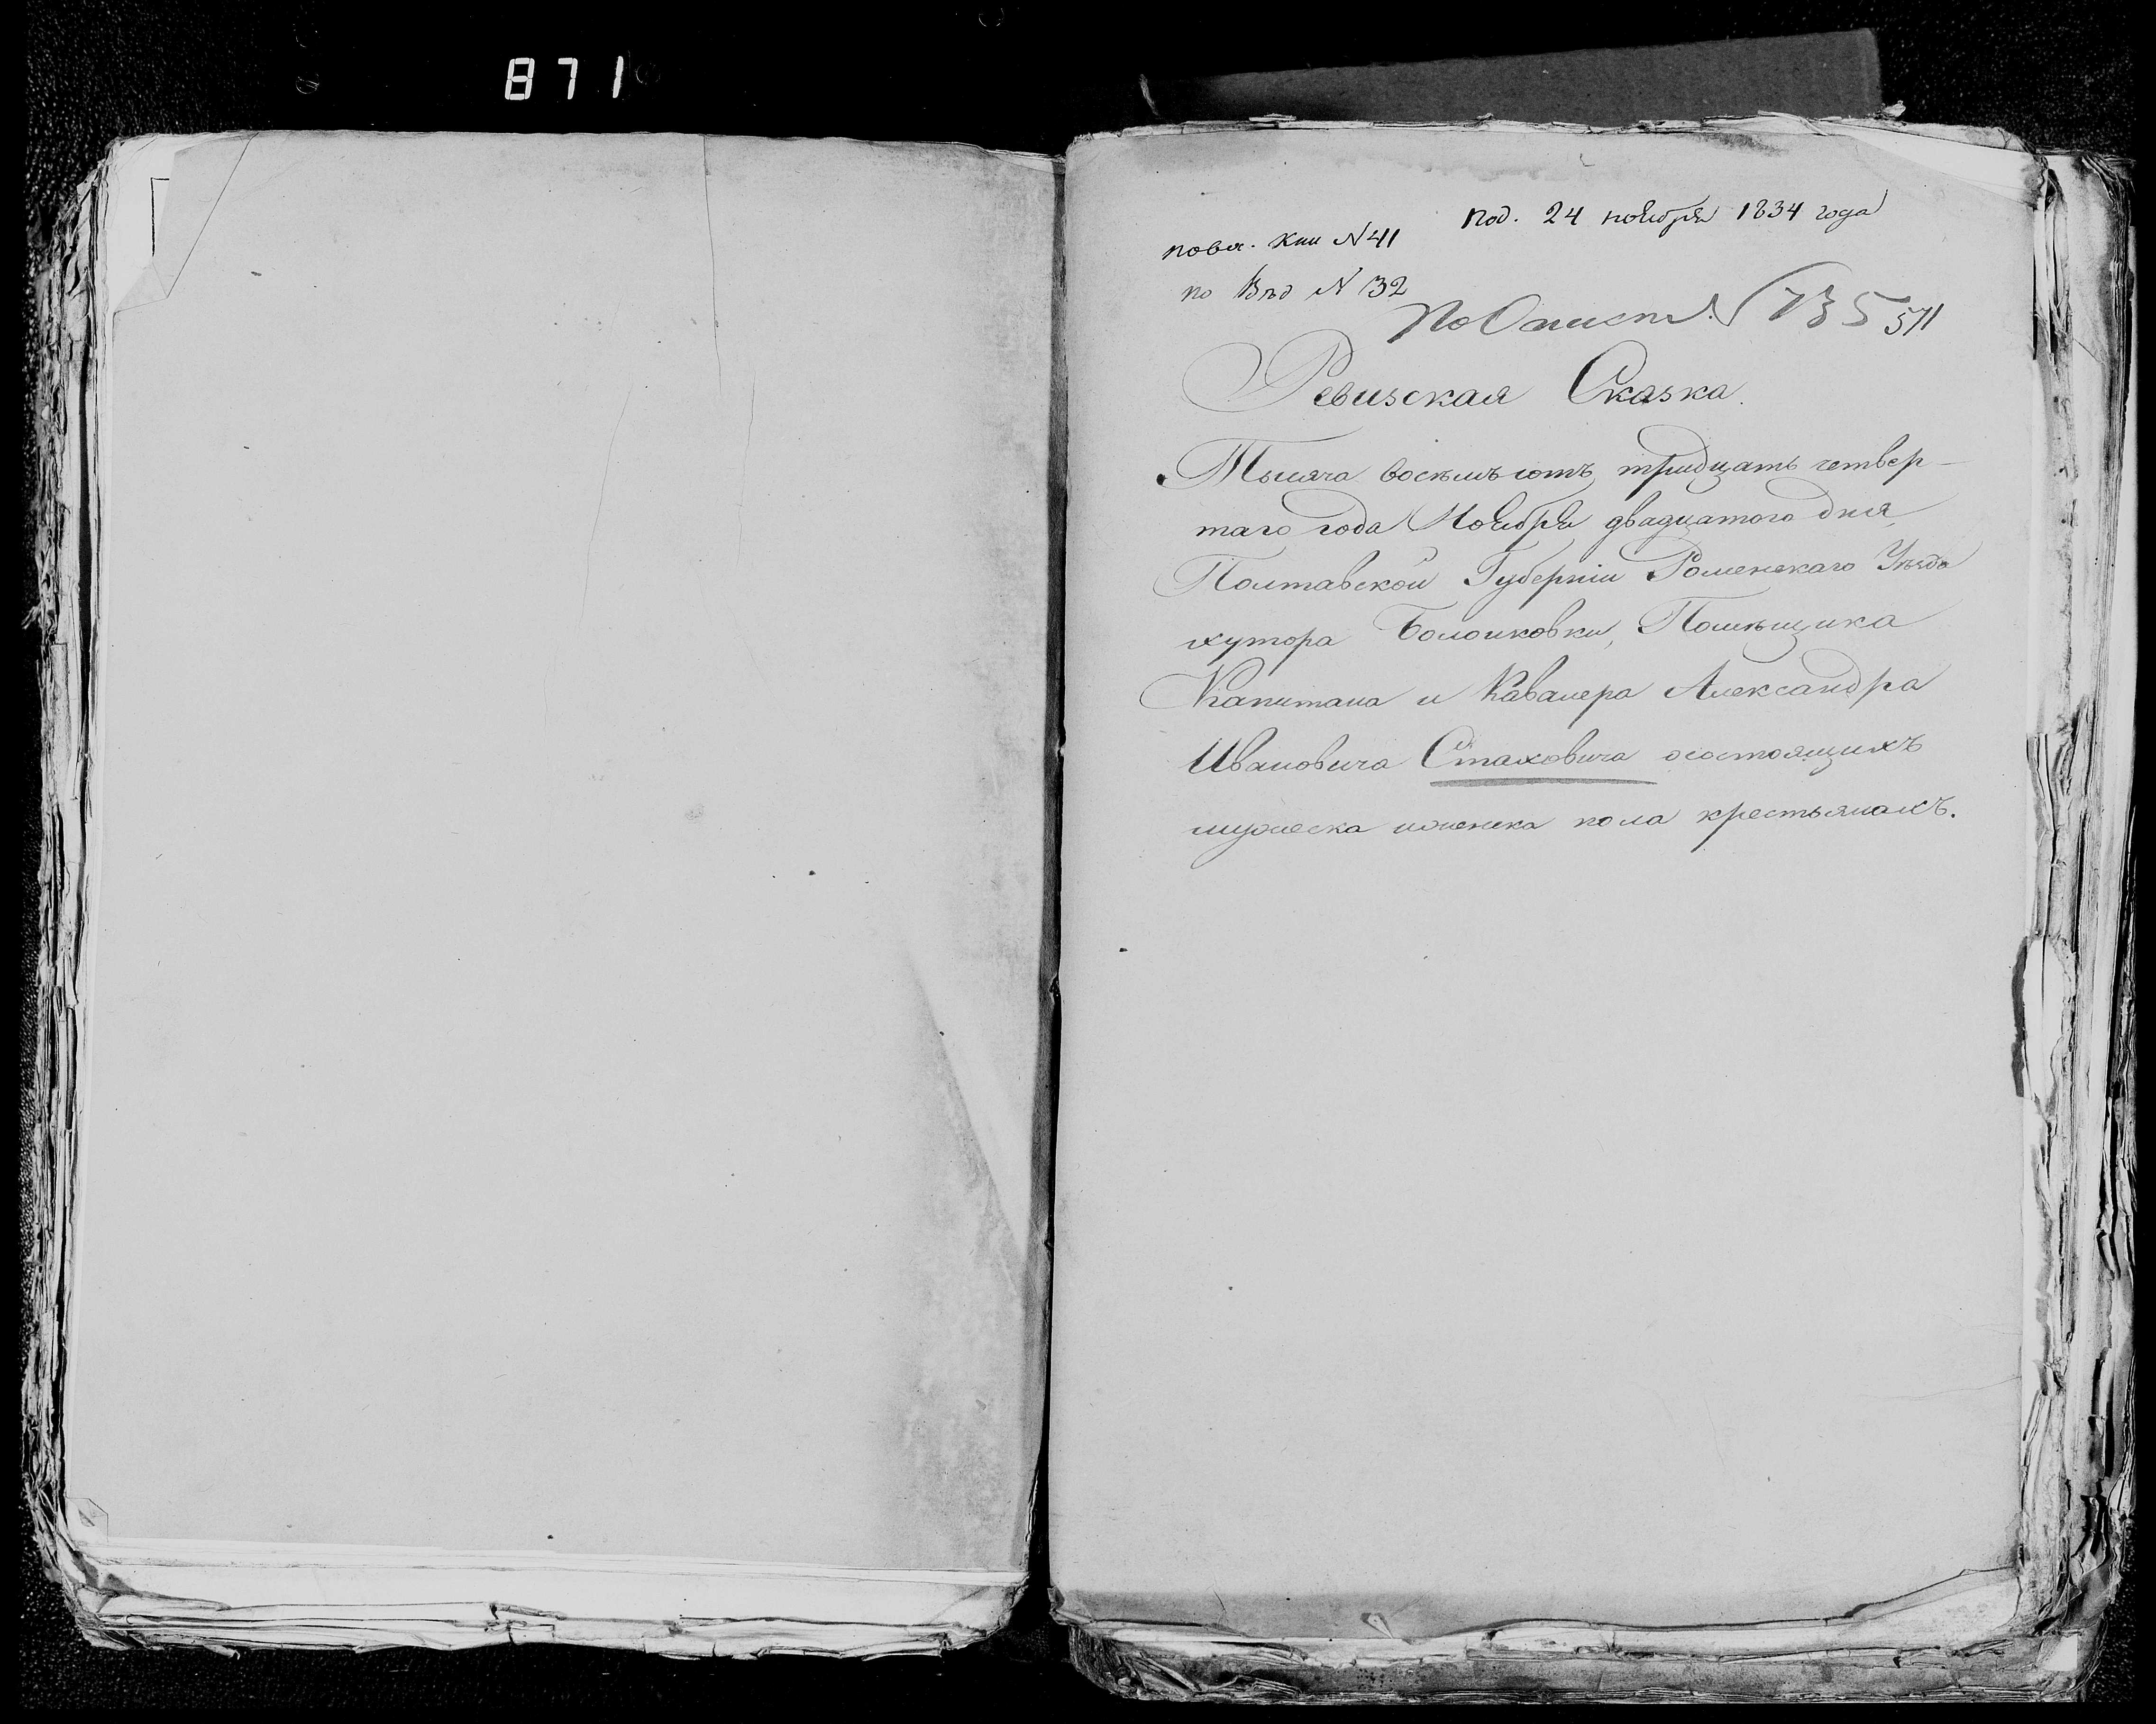 871
под. 24 ноября 1834 года
по вх. кни №41
по Вѣд №32
По Описи № 735
571
Ревизская Сказка.
Тысяча восемьсотъ тридцать четвер-
таго года Ноября двадцатого дня
Полтавской Губерніи Роменскаго Уѣзда
хутора Помѣщика
Капитана и Кавалера Александра
Ивановича Стаховича осостоящихъ
мужеска иженска пола крестьянахъ.